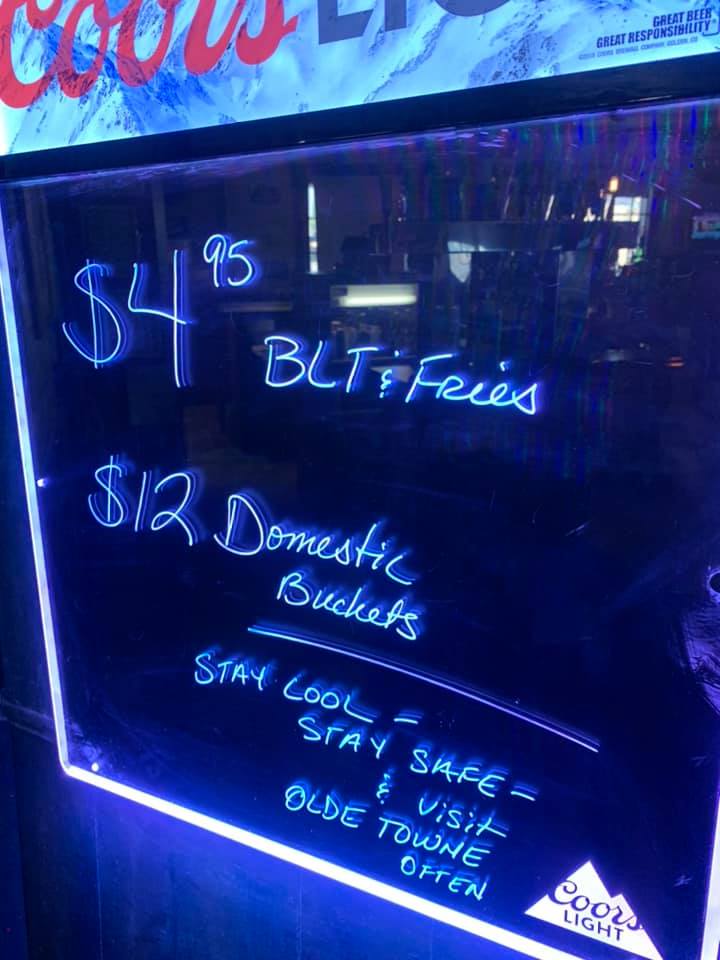 Coors LIG
GREAT BEER
GREAT RESPONSIBILITY
$4 95
BLT & Fries
$12 Domestic
Buckets
STAY COOL -
STAY SAFE -
& Visit
OLDE TOWNE
OFTEN
Coors
LIGHT